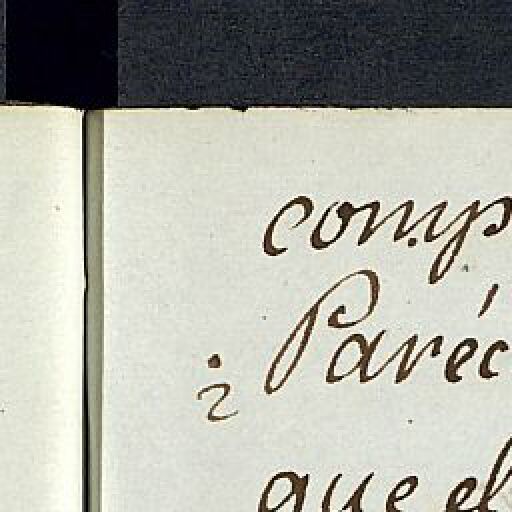 comp
¿Paréc
que el